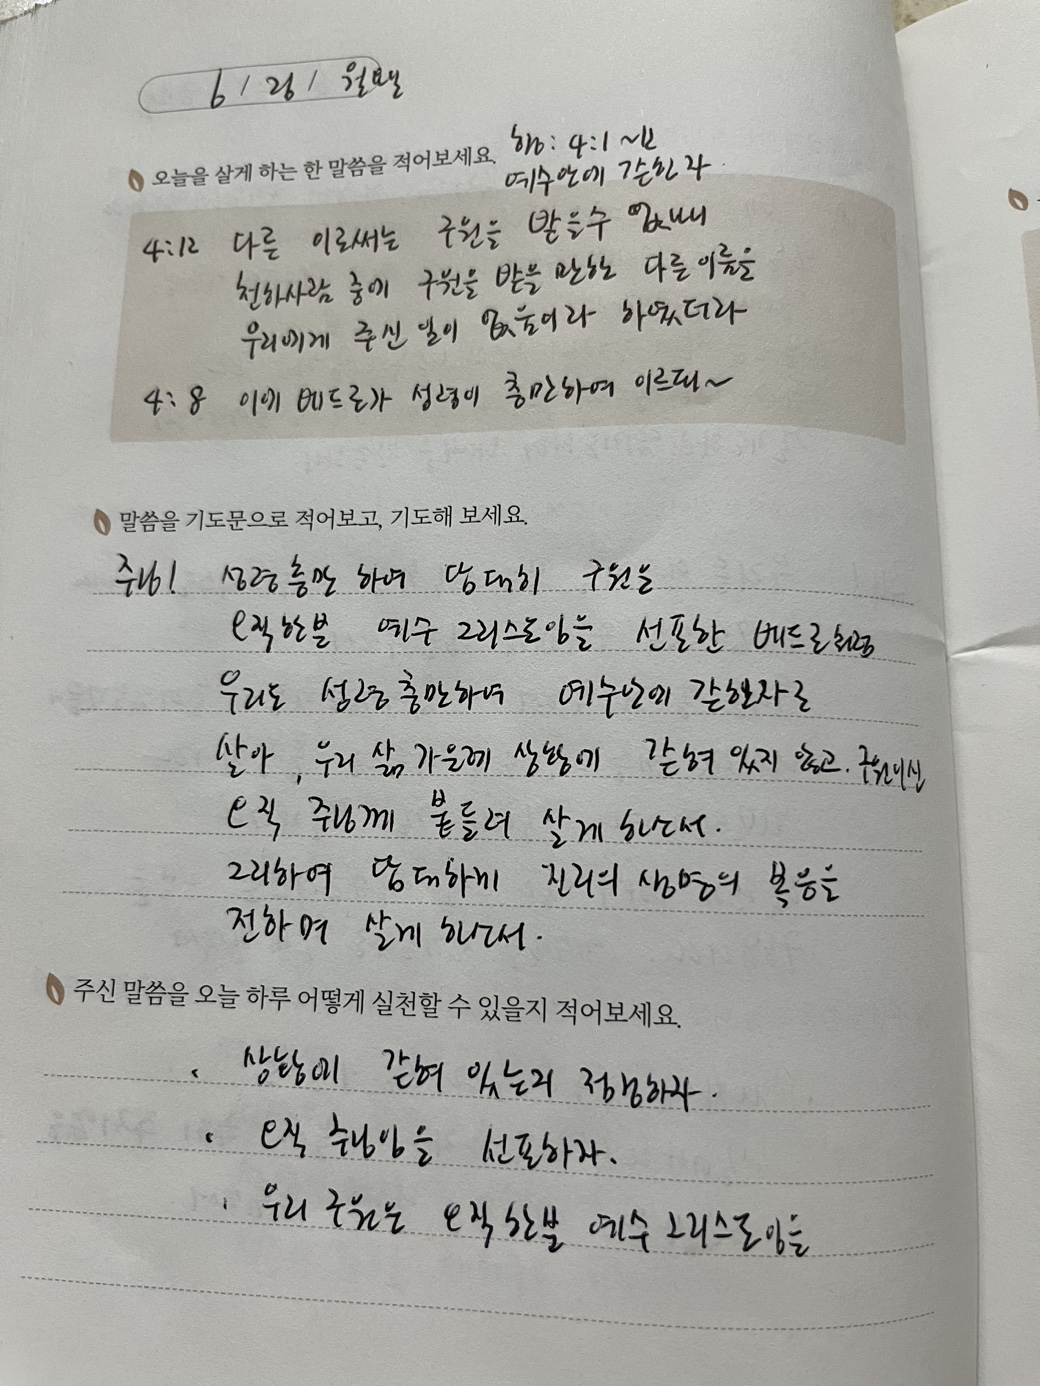 6 / 21 / 월요일
오늘을 살게 하는 한 말씀을 적어보세요.
행: 4:1 ~12
예수안에 갇힌 자
4:12 다른 이로써는 구원을 받을수 없나니
천하사람 중에 구원을 받을 만한 다른이름을
우리에게 주신 일이 없음이라 하였더라
4:8 이에 베드로가 성령이 충만하여 이르되~
말씀을 기도문으로 적어보고, 기도해 보세요.
주님! 성령충만 하여 담대히 구원을
오직한분 예수 그리스도임을 선포한 베드로처럼
우리도 성령충만하여 예수안에 갇힌자로
살아, 우리 삶 가운데 상황에 갇혀 있지 않고. 구원되신
오직 주님께 붙들려 살게 하소서.
그리하여 담대하게 진리의 생명의 복음을
전하며 살게 하소서.
주신 말씀을 오늘 하루 어떻게 실천할 수 있을지 적어보세요.
· 상황에 갇혀 있는지 점검하자.
· 오직 주님임을 선포하자.
· 우리 구원은 오직 한분 예수 그리스도임을